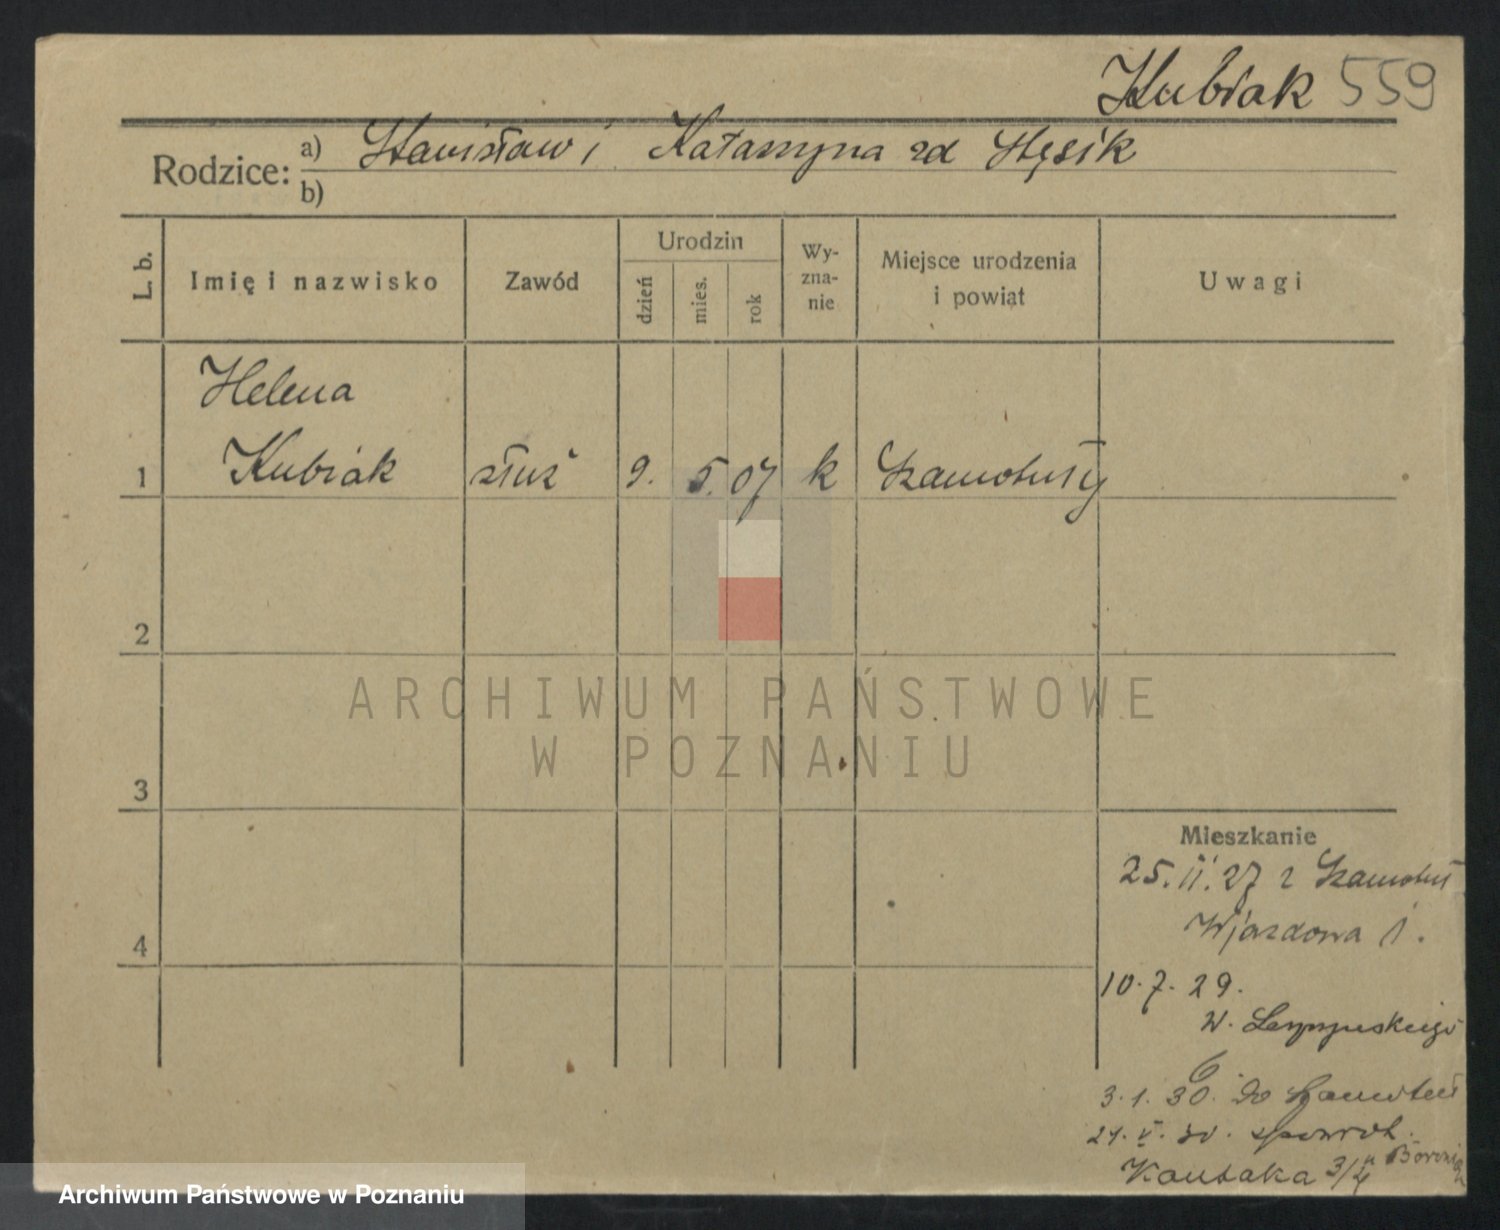 Kubiak 559
Rodzice: a) Stanisław i Katarzyna zd Stęsik
b)
L. b.
Imię i nazwisko
Zawód
Urodzin
dzień
mies.
rok
Wy-
zna-
nie
Miejsce urodzenia
i powiat
Uwagi
Helena
1 Kubiak służ 9. 5. 07 k Szamotuły
2
ARCHIWUM PAŃSTWOWE
W POZNANIU
3
Mieszkanie
25. II. 27 z Szamotuł
Wjazdowa 1.
4
10. 7. 29.
W.
6
3. 1. 30. do Szamotuł
24. V. 30. zpowrot.
Kantaka 3/4 u
Archiwum Państwowe w Poznaniu